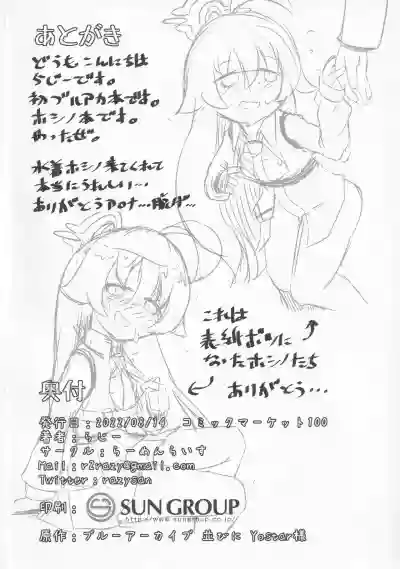 あとがき
どうもこんにちは
らじーです。
初ブルアカ本です。
ホシノ本です。
やったぜ。
水着ホシノ来てくれて
本当にうれしい…
ありがとうアロナ…
これは
表紙ボツに
なったホシノたち
ありがとう…
奥付
発行日：2022/08/14 コミックマーケット100
著者：らじー
サークル：らーめんらいす
Mail：r2razy@gmail.com
Twitter：razysan
印刷： SUN GROUP
http://www.sungroup.co.jp/
原作：ブルーアーカイブ 並びに Yostar様